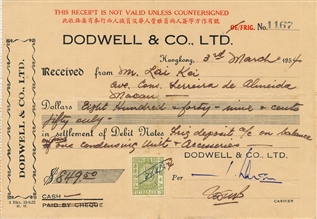 THIS RECEIPT IS NOT VALID UNLESS COUNTERSIGNED
OE/FRIG. No. 1167
DODWELL & CO., LTD.
Hongkong, 3rd March 1954
Received from M. Lai Kei,
Ave. Cons. Ferreira de Almeida
Macau
Dollars Eight Hundred & forty-nine & cents
fifty only
in settlement of Debit Notes this deposit % on balance
of one condensing Unit & Accessories
DODWELL & CO., LTD.
$849.50
Per
CASH
PAID BY CHEQUE
CASHIER
DODWELL & CO., LTD.